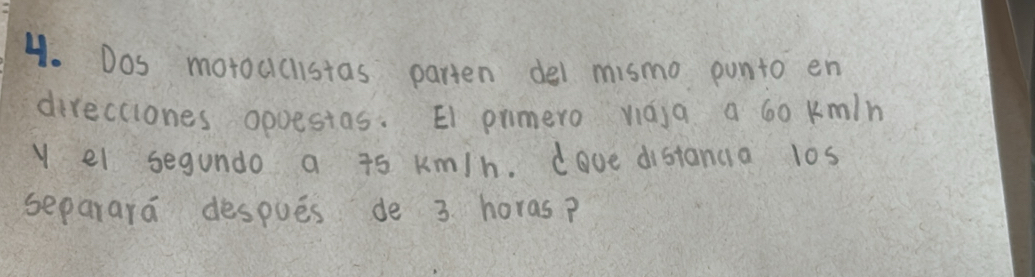 4. Dos motociclistas parten del mismo punto en
direcciones opuestas. El primero viaja a 60 km/h
y el segundo a 75 km/h. ¿Que distancia los
separará después de 3 horas?